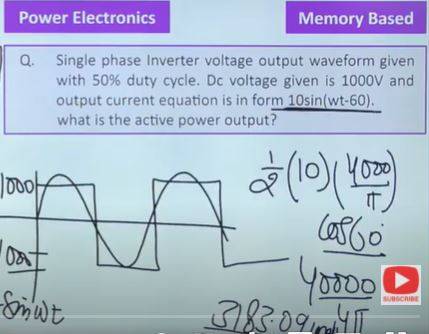 Power Electronics
Memory Based
Q. Single phase Inverter voltage output waveform given
with 50% duty cycle. Dc voltage given is 1000V and
output current equation is in form 10sin(wt-60).
what is the active power output?
1000
1/2 (10) (4000/π)
cos60
40000
4π
SUBSCRIBE
sinwt
3183.09